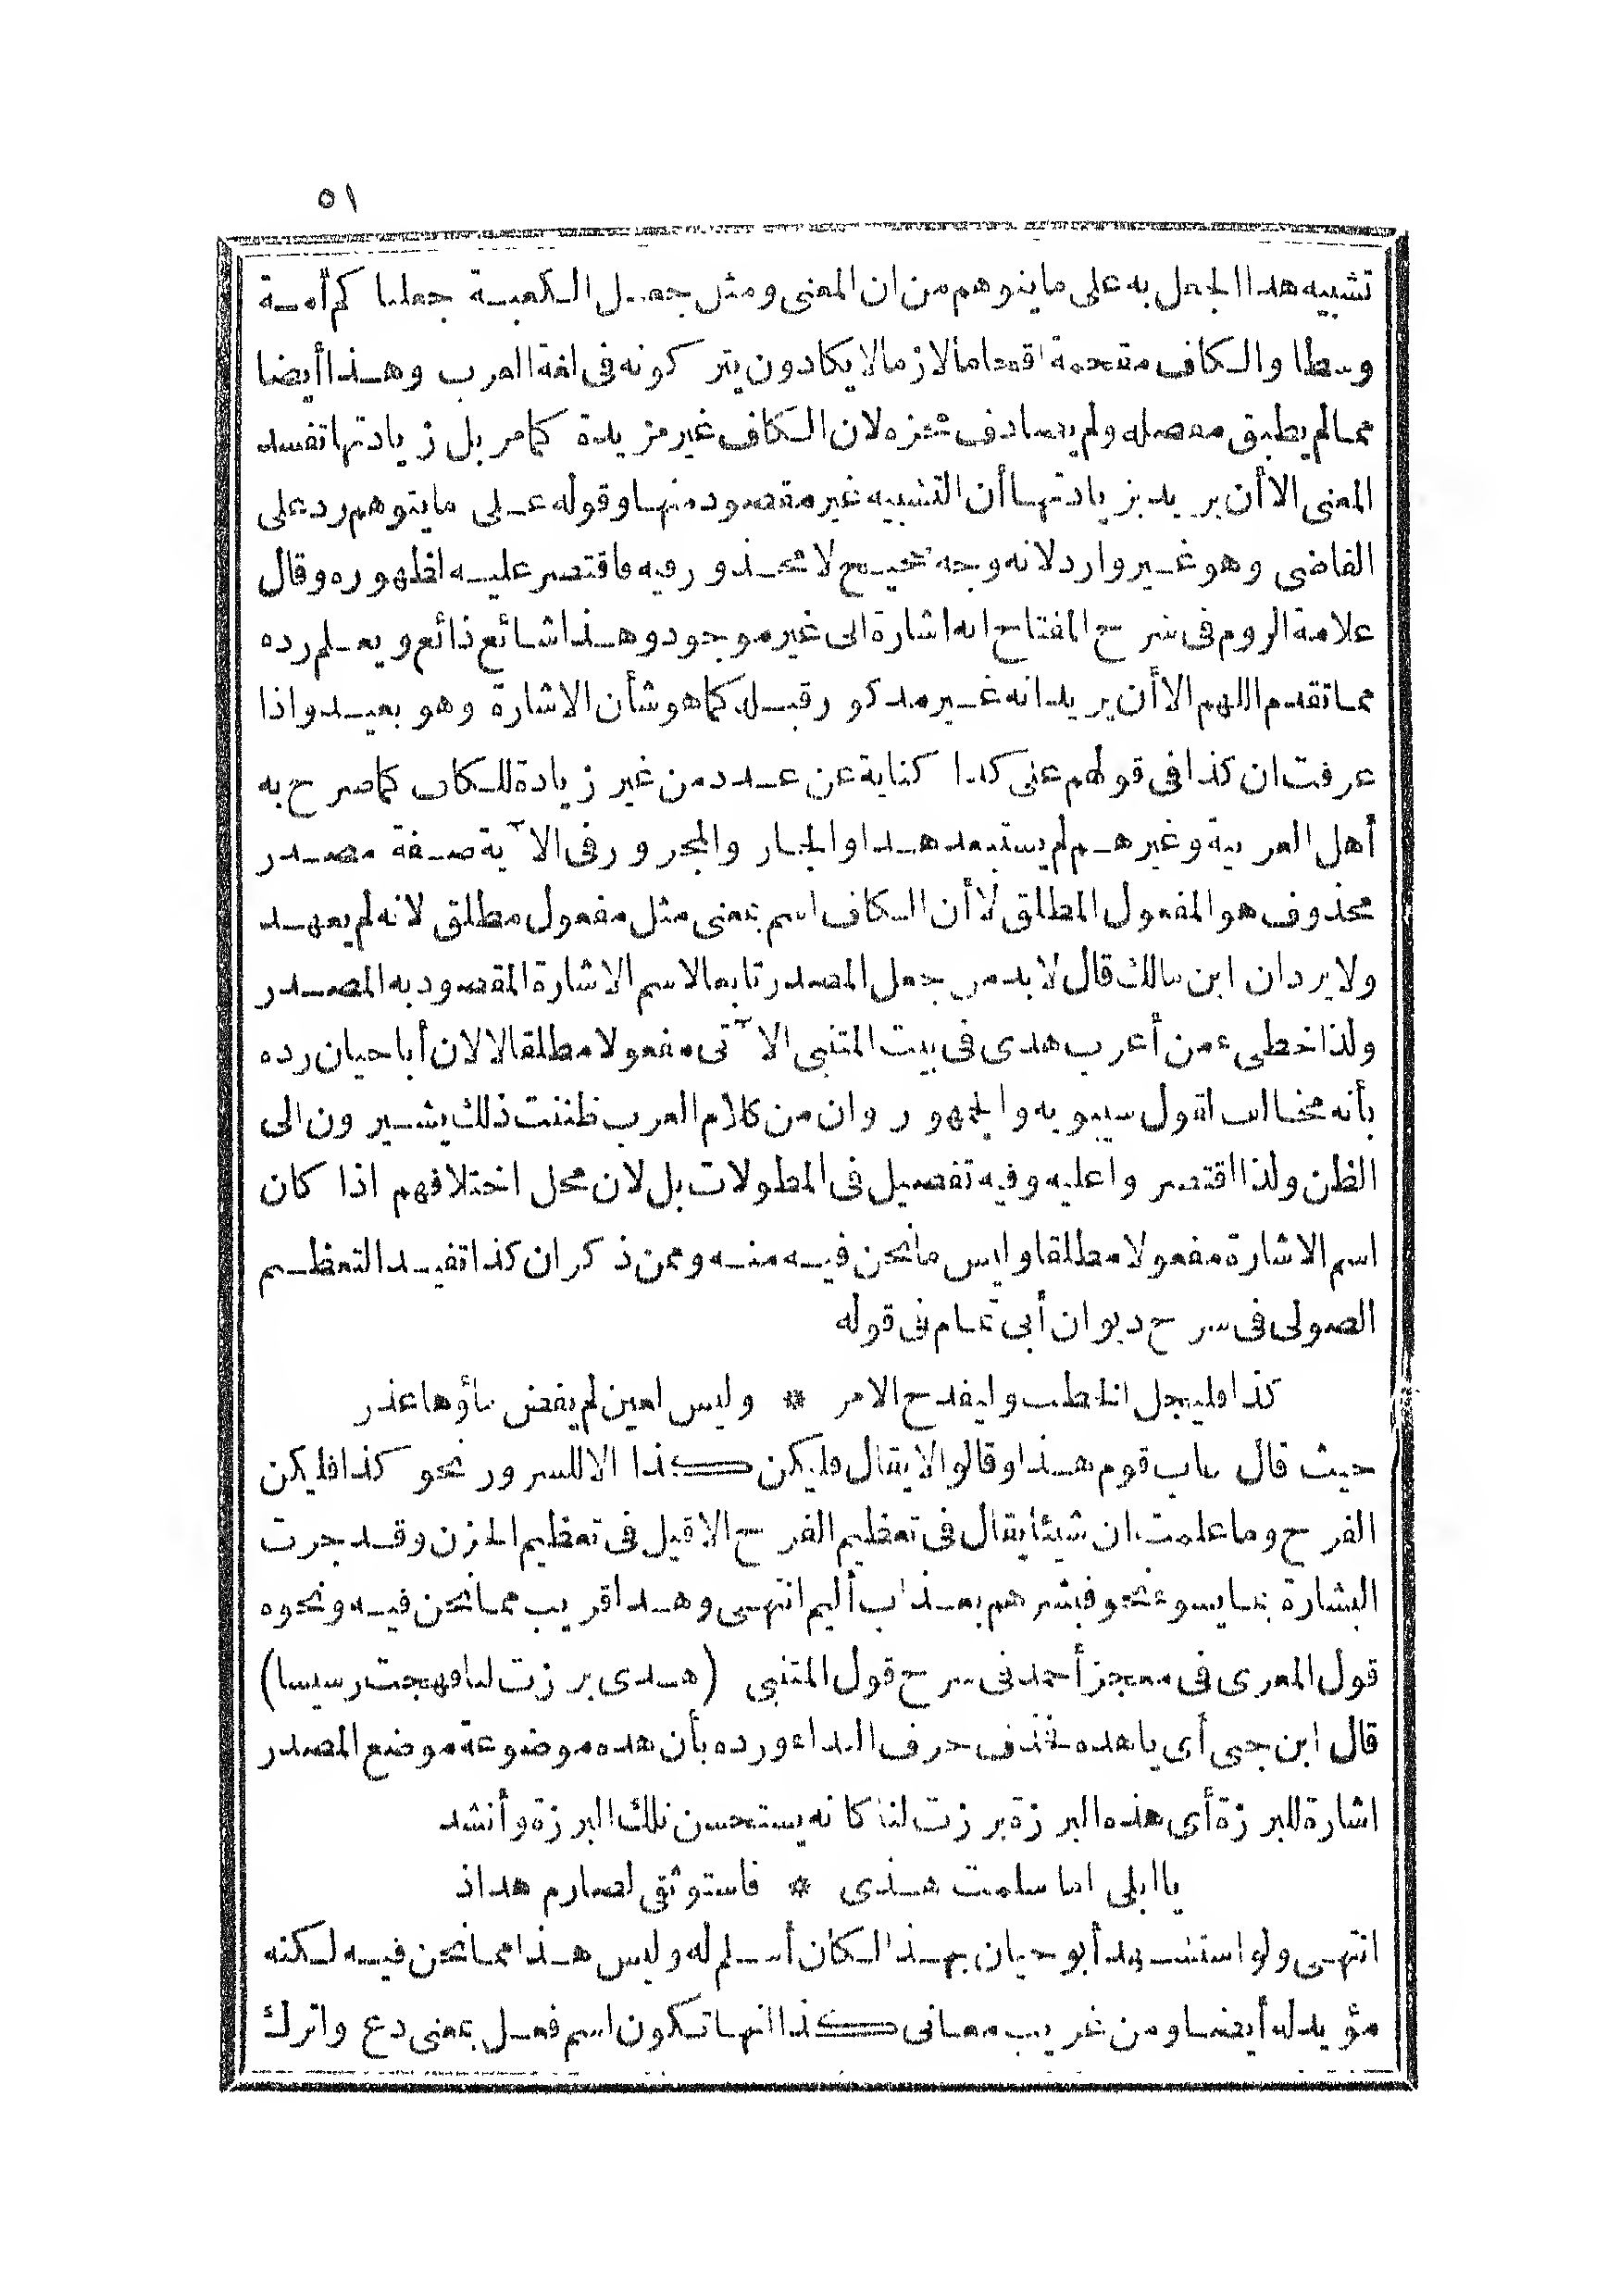 ٥١
تشبيه هذا الجعل به على ما يتوهم من ان المعنى ومثل جعل الكعبة جعلنا كم أمة
وسطا والكاف مقحمة اقحاما لازما لا يكادون يتركونه فى لغة العرب وهذا أيضا
مما لم يطبق مفصله ولم يصادف محزه لان الكاف غير مزيدة كما مر بل زيادتها تفسد
المعنى الا أن يريد بزيادتها أن التشبيه غير مقصود منها وقوله على ما يتوهم رد على
القاضى وهو غير وارد لانه وجه صحيح لا محذور فيه فاقتصر عليه لظهوره وقال
علامة الروم فى شرح المفتاح انه اشارة الى غير موجود وهذا شائع ذائع ويعلم رده
مما تقدم اللهم الا أن يريد انه غير مذكور قبل كما هو شأن الاشارة وهو بعيد واذا
عرفت ان كذا فى قولهم عنى كذا كناية عن عدد من غير زيادة للكاف كما صرح به
أهل العربية وغيرهم لم يستبعد هذا والجار والمجرور فى الآية صفة مصدر
محذوف هو المفعول المطلق لا أن الكاف اسم بمعنى مثل مفعول مطلق لانه لم يعهد
ولا يرد ان ابن مالك قال لا بد من جعل المصدر تابعا لاسم الاشارة المقصود به المصدر
ولذا خطىء من أعرب هذى فى بيت المتنبى الآتى مفعولا مطلقا لا لان أبا حيان رده
بأنه مخالف لقول سيبويه والجمهور وان من كلام العرب ظننت ذلك يشيرون الى
الظن ولذا اقتصروا عليه وفيه تفصيل فى المطولات بل لان محل اختلافهم اذا كان
اسم الاشارة مفعولا مطلقا وليس ما نحن فيه منه وممن ذكر ان كذا تفيد التعظيم
الصولى فى شرح ديوان أبى تمام فى قوله
كذا فليجل الخطب وليفدح الامر * وليس لعين لم يفض ماؤها عذر
حيث قال عاب قوم هذا وقالوا لا يقال فليكن كذا الا للسرور نحو كذا فليكن
الفرح وما علمت ان شيئا يقال فى تعظيم الفرح الا قيل فى تعظيم الحزن وقد جرت
البشارة بما يسوء نحو فبشرهم بعذاب أليم انتهى وهذا قريب مما نحن فيه ونحوه
قول المعرى فى معجز أحمد فى شرح قول المتنبى (هذى برزت لنا فهجت رسيسا)
قال ابن جنى أى يا هذه فحذف حرف النداء ورده بأن هذه موضوعة موضع المصدر
اشارة للبرزة أى هذه البرزة برزت لنا كأنه يستحسن تلك البرزة وأنشد
يا ابلى اما سلمت هذى * فاستوثقى لصارم هذاذ
انتهى ولو استشهد أبو حيان بهذا لكان أسلم له وليس هذا مما نحن فيه لكنه
مؤيد له أيضا ومن غريب معانى كذا انها تكون اسم فعل بمعنى دع واترك